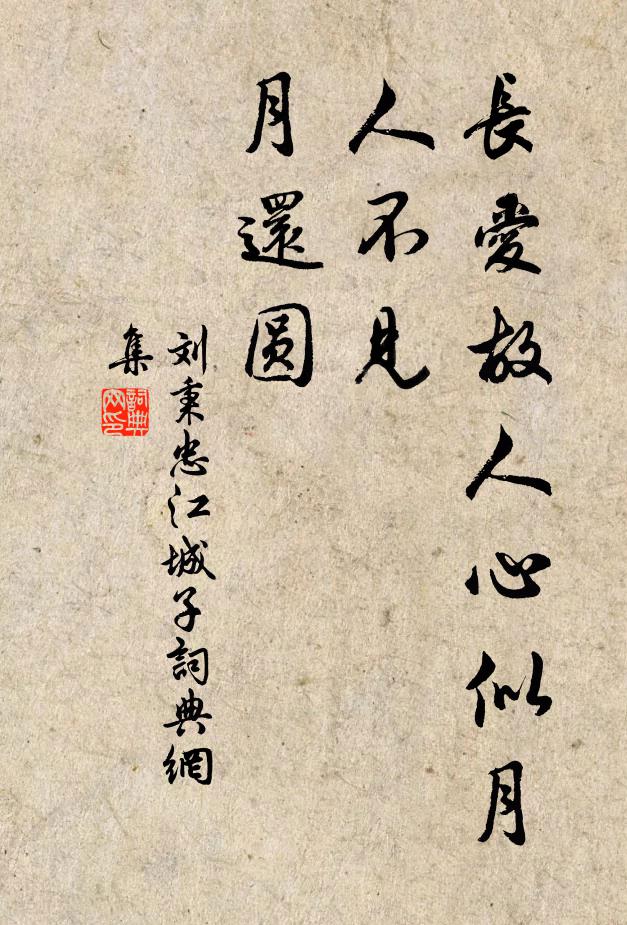 長愛故人心似月
人不見
月還圓
刘秉忠江城子詞典網
集
詞典
网印